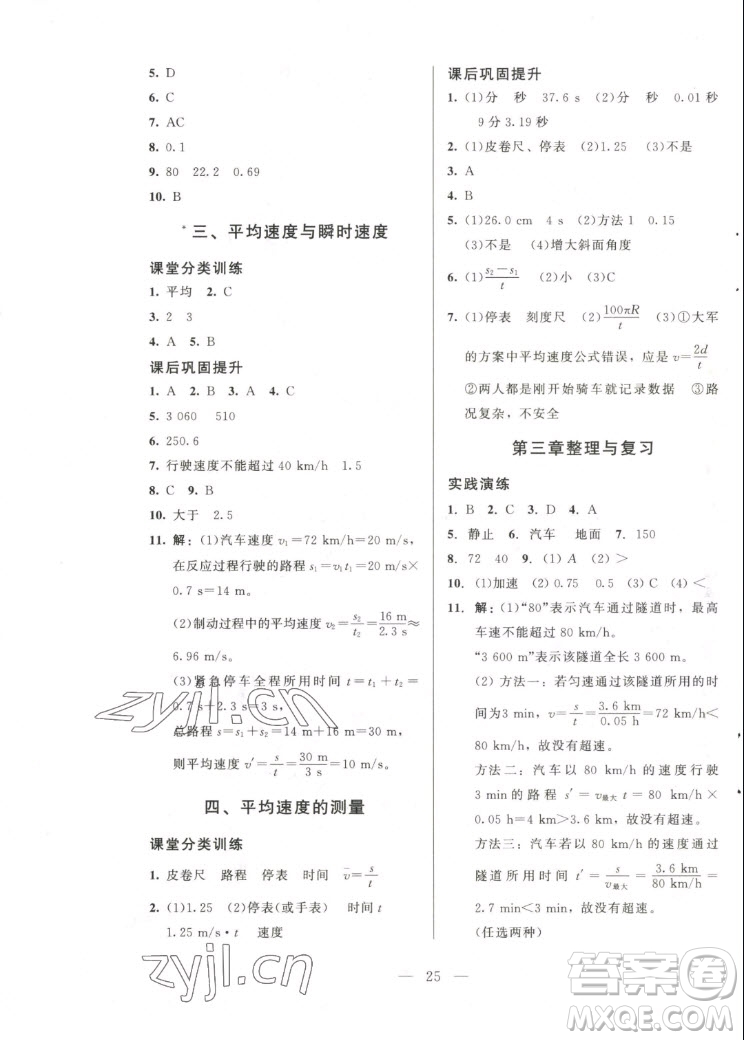 5. D
6. C
7. AC
8. 0.1
9. 80　22.2　0.69
10. B
三、平均速度与瞬时速度
课堂分类训练
1. 平均　2. C
3. 2　3
4. A　5. B
课后巩固提升
1. A　2. B　3. A　4. C
5. 3 060　510
6. 250.6
7. 行驶速度不能超过 40 km/h　1.5
8. C　9. B
10. 大于　2.5
11. 解：(1)汽车速度 v₁＝72 km/h＝20 m/s，
在反应过程行驶的路程 s₁＝v₁t₁＝20 m/s×
0.7 s＝14 m。
(2)制动过程中的平均速度 v₂＝s₂/t₂＝16 m/2.3 s≈
6.96 m/s。
(3)紧急停车全程所用时间 t＝t₁＋t₂＝
0.7 s＋2.3 s＝3 s，
总路程 s＝s₁＋s₂＝14 m＋16 m＝30 m，
则平均速度 v′＝s/t＝30 m/3 s＝10 m/s。
四、平均速度的测量
课堂分类训练
1. 皮卷尺　路程　停表　时间　v̄＝s/t
2. (1)1.25　(2)停表(或手表)　时间 t
1.25 m/s·t　速度
课后巩固提升
1. (1)分　秒　37.6 s　(2)分　0.01 秒
9 分 3.19 秒
2. (1)皮卷尺、停表　(2)1.25　(3)不是
3. A
4. B
5. (1)26.0 cm　4 s　(2)方法1　0.15
(3)不是　(4)增大斜面角度
6. (1)(s₂－s₁)/t　(2)小　(3)C
7. (1)停表　刻度尺　(2)100πR/t　(3)①大军
的方案中平均速度公式错误，应是 v＝2d/t
②两人都是刚开始骑车就记录数据　③路
况复杂，不安全
第三章整理与复习
实践演练
1. B　2. C　3. D　4. A
5. 静止　6. 汽车　地面　7. 150
8. 72　40　9. (1)A　(2)＞
10. (1)加速　(2)0.75　0.5　(3)C　(4)＜
11. 解：(1)“80”表示汽车通过隧道时，最高
车速不能超过 80 km/h。
“3 600 m”表示该隧道全长 3 600 m。
(2) 方法一：若匀速通过该隧道所用的时
间为3 min，v＝s/t＝3.6 km/0.05 h＝72 km/h＜
80 km/h，故没有超速。
方法二：汽车以 80 km/h 的速度行驶
3 min 的路程 s′＝v最大 t＝80 km/h×
0.05 h＝4 km＞3.6 km，故没有超速。
方法三：汽车若以 80 km/h 的速度通过
隧道所用时间 t′＝s/v最大＝3.6 km/80 km/h＝
2.7 min＜3 min，故没有超速。
(任选两种)
— 25 —
zyjl.cn
zyjl.cn
答案圈
MXQE.COM